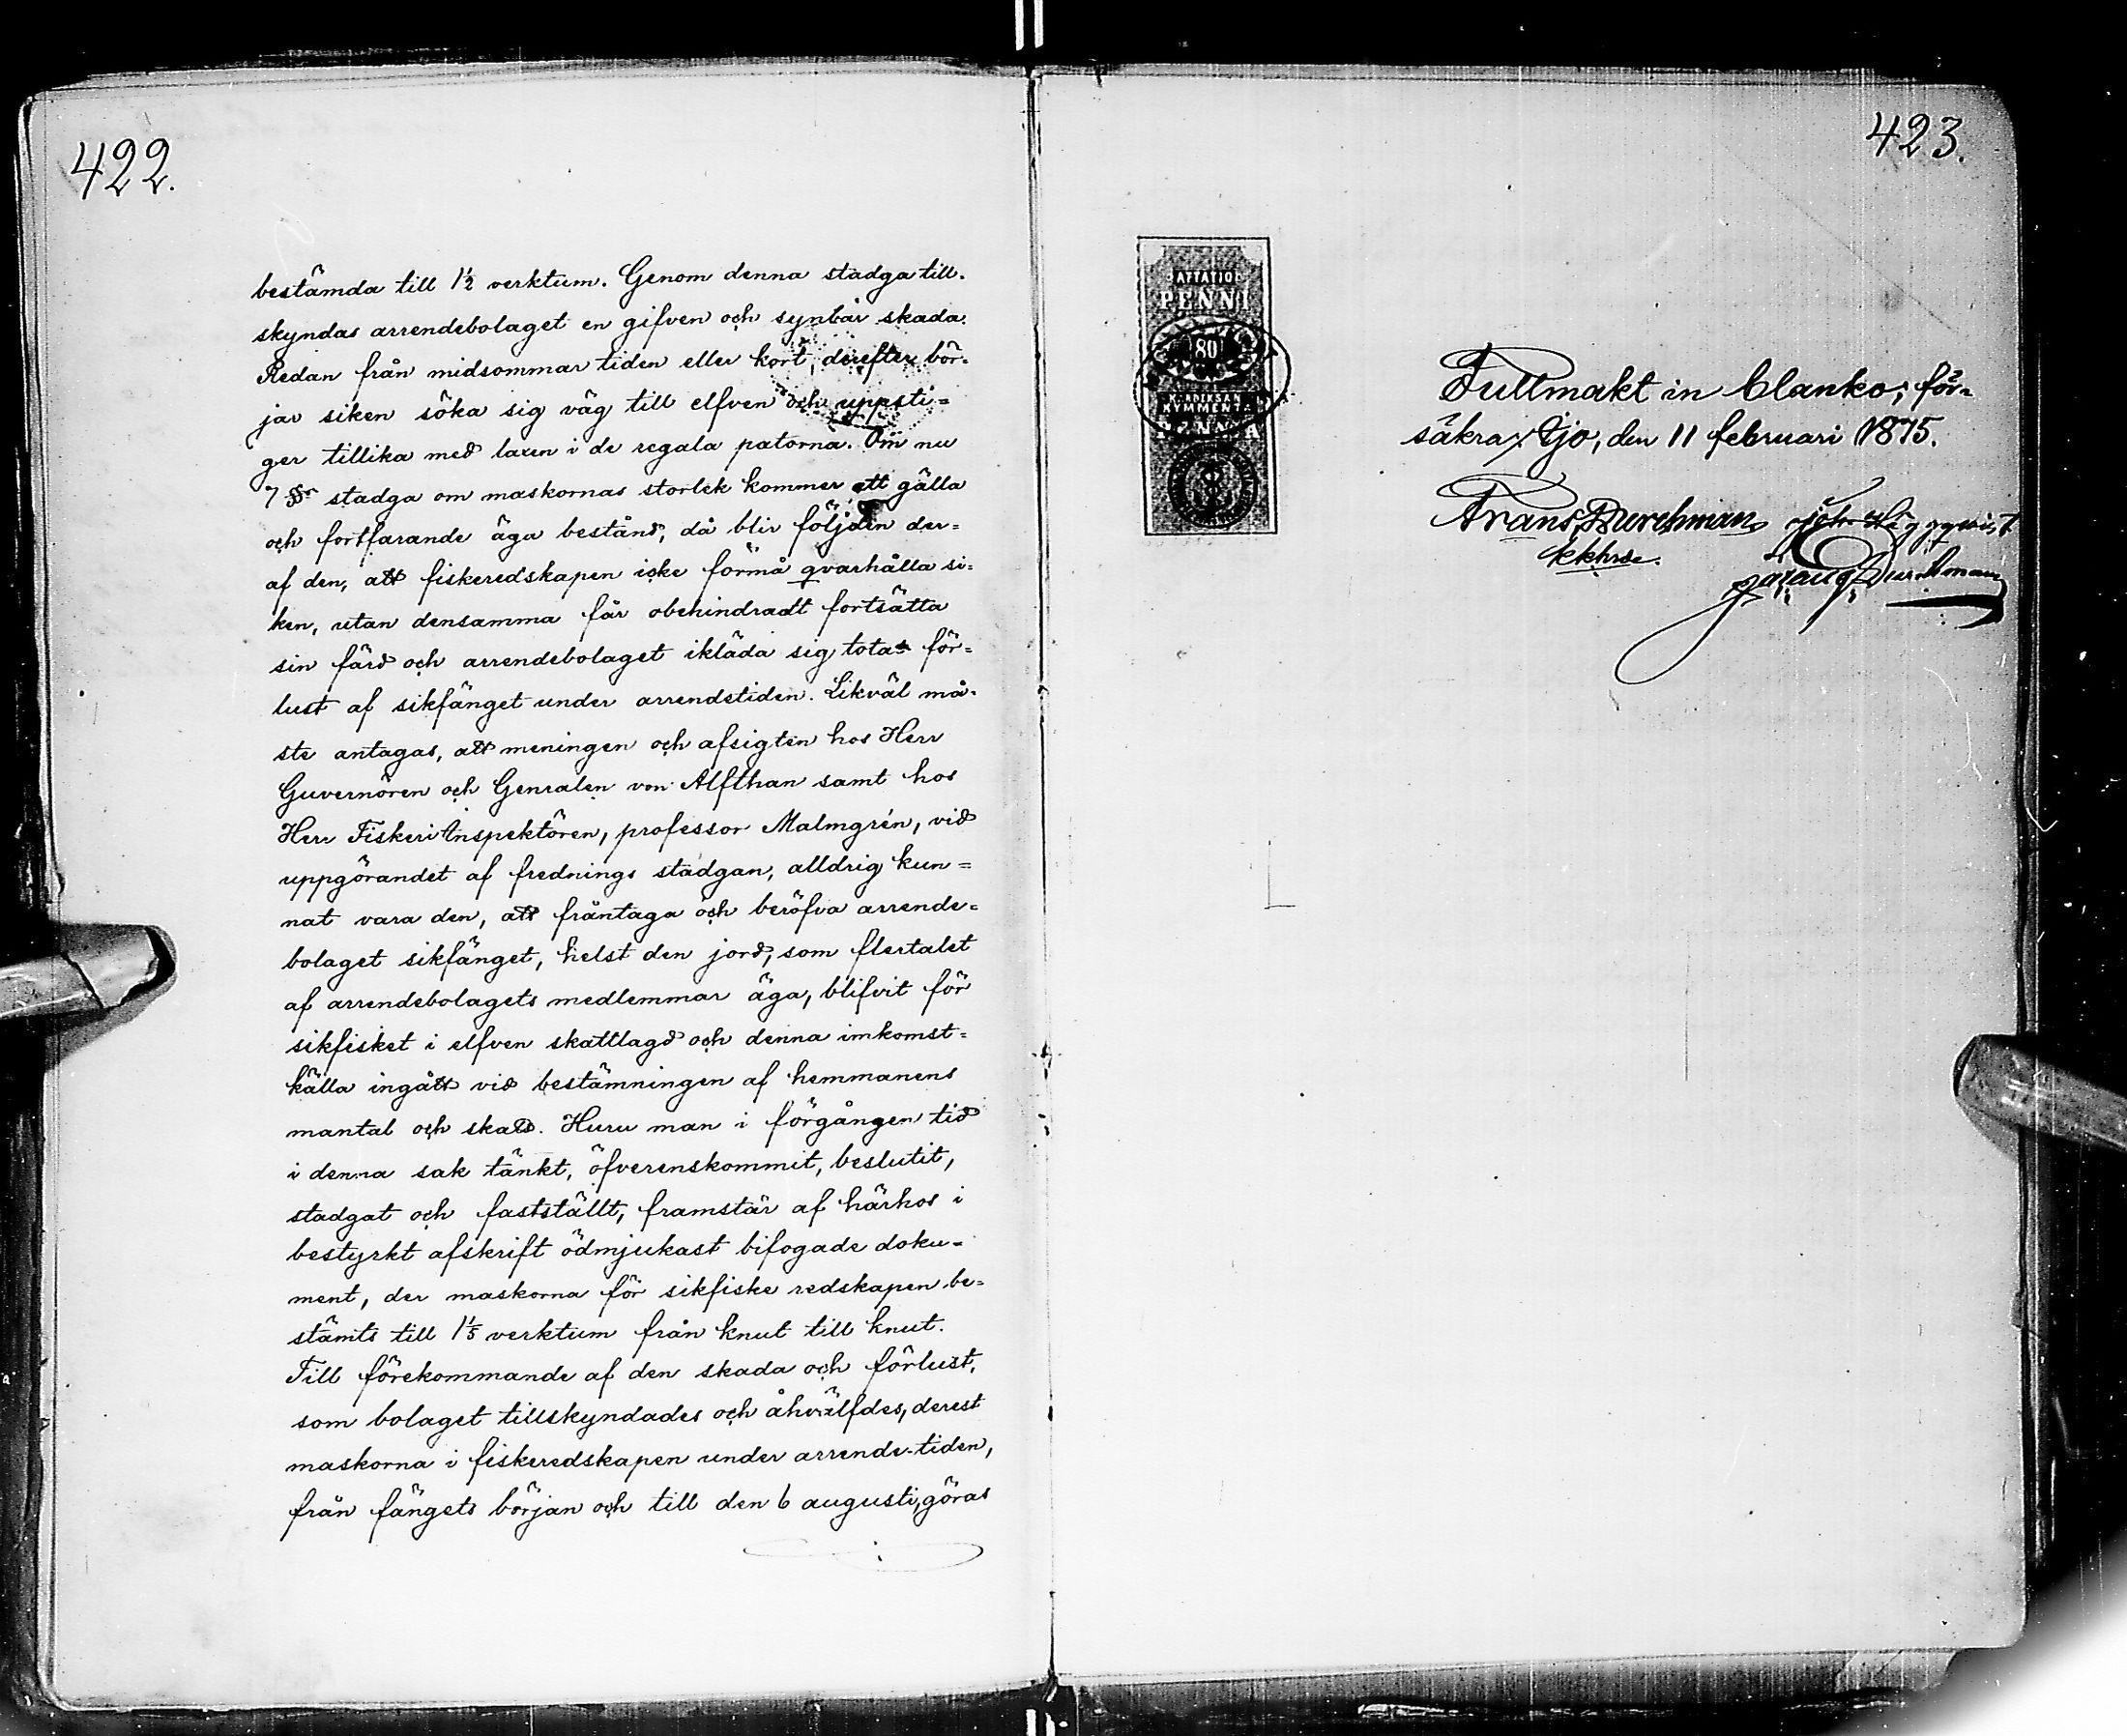 422.
bestämda till 1½ verktum. Genom denna stadga till-
skyndas arrendebolaget en gifven och synbar skada.
Redan från midsommar tiden eller kort, derefter bör-
jar siken söka sig väg till elfven och uppsti=
ger tillika med laxen i de regala patorna. Om nu
7 §s stadga om maskornas storlek kommer att gälla
och fortfarande äga bestånd, då blir följden der=
af den, att fiskeredskapen icke förmå qvarhålla si=
ken, utan densamma får obehindradt fortsätta
sin färd och arrendebolaget ikläda sig total för=
lust af sikfånget under arrendetiden. Likväl må-
ste antagas, att meningen och afsigten hos Herr
Guvernören och Genralen von Alfthan samt hos
Herr Fiskeri Inspektören, professor Malmgrén, vid
uppgörandet af frednings stadgan, alldrig kun=
nat vara den, att fråntaga och beröfva arrende=
bolaget sikfånget, helst den jord, som flertalet
af arrendebolagets medlemmar äga, blifvit för
sikfisket i elfven skattlagd och denna imkomst=
källa ingått vid bestämningen af hemmanens
mantal och skatt. Huru man i förgången tid
i denna sak tänkt, öfverenskommit, beslutit,
stadgat och fastställt, framstår af härhos i
bestyrkt afskrift ödmjukast bifogade doku-
ment, der maskorna för sikfiske redskapen be=
stämts till 1⅕ verktum från knut till knut.
Till förekommande af den skada och förlust,
som bolaget tillskyndades och åhvälfdes, derest
maskorna i fiskeredskapen under arrende-tiden,
från fångets början och till den 6 augusti, göras
423.
ÅTTATIO
PENNI
80
KAHDEKSAN
KYMMENTÄ
PENNIÄ
Fullmakt in blanko; för=
säkra; Ijo, den 11 februari 1875.
Frans Durchman
kkhrde.
Joh Häggqvist
Durchman